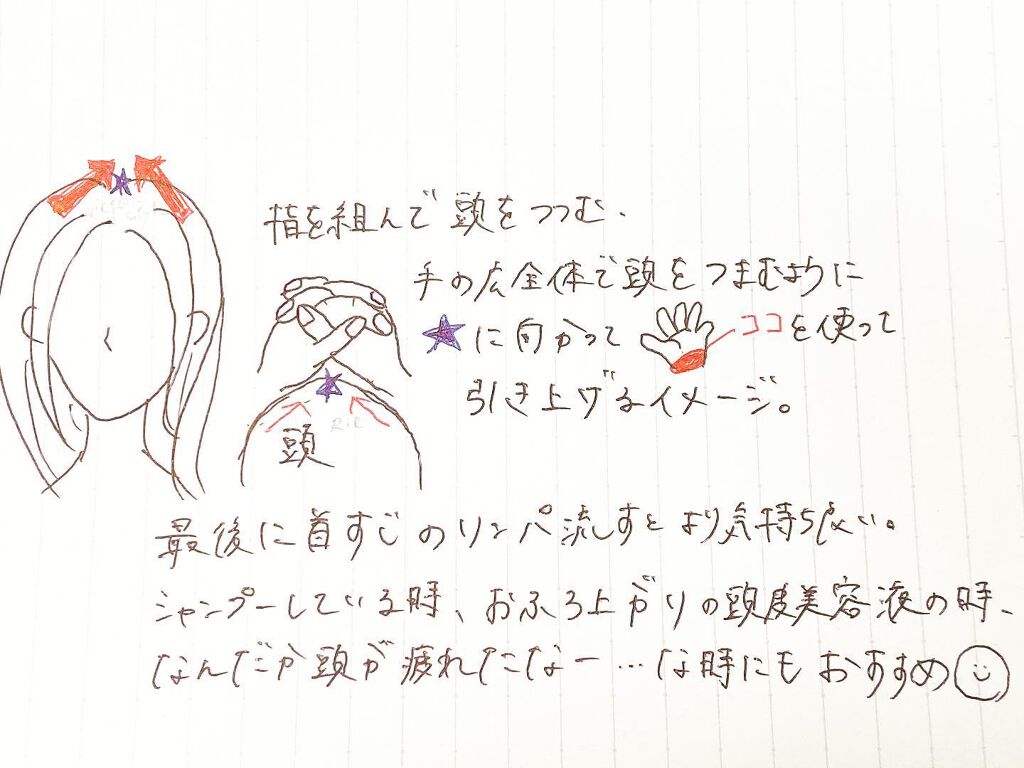 指を組んで頭をつつむ、
手の広全体で頭をつまむように
★に向かって ココを使って
引き上げるイメージ。
頭
最後に首すじのリンパ流すとより気持ち良い。
シャンプーしている時、おふろ上がりの頭皮美容液の時、
なんだか頭が疲れたなー…な時にもおすすめ